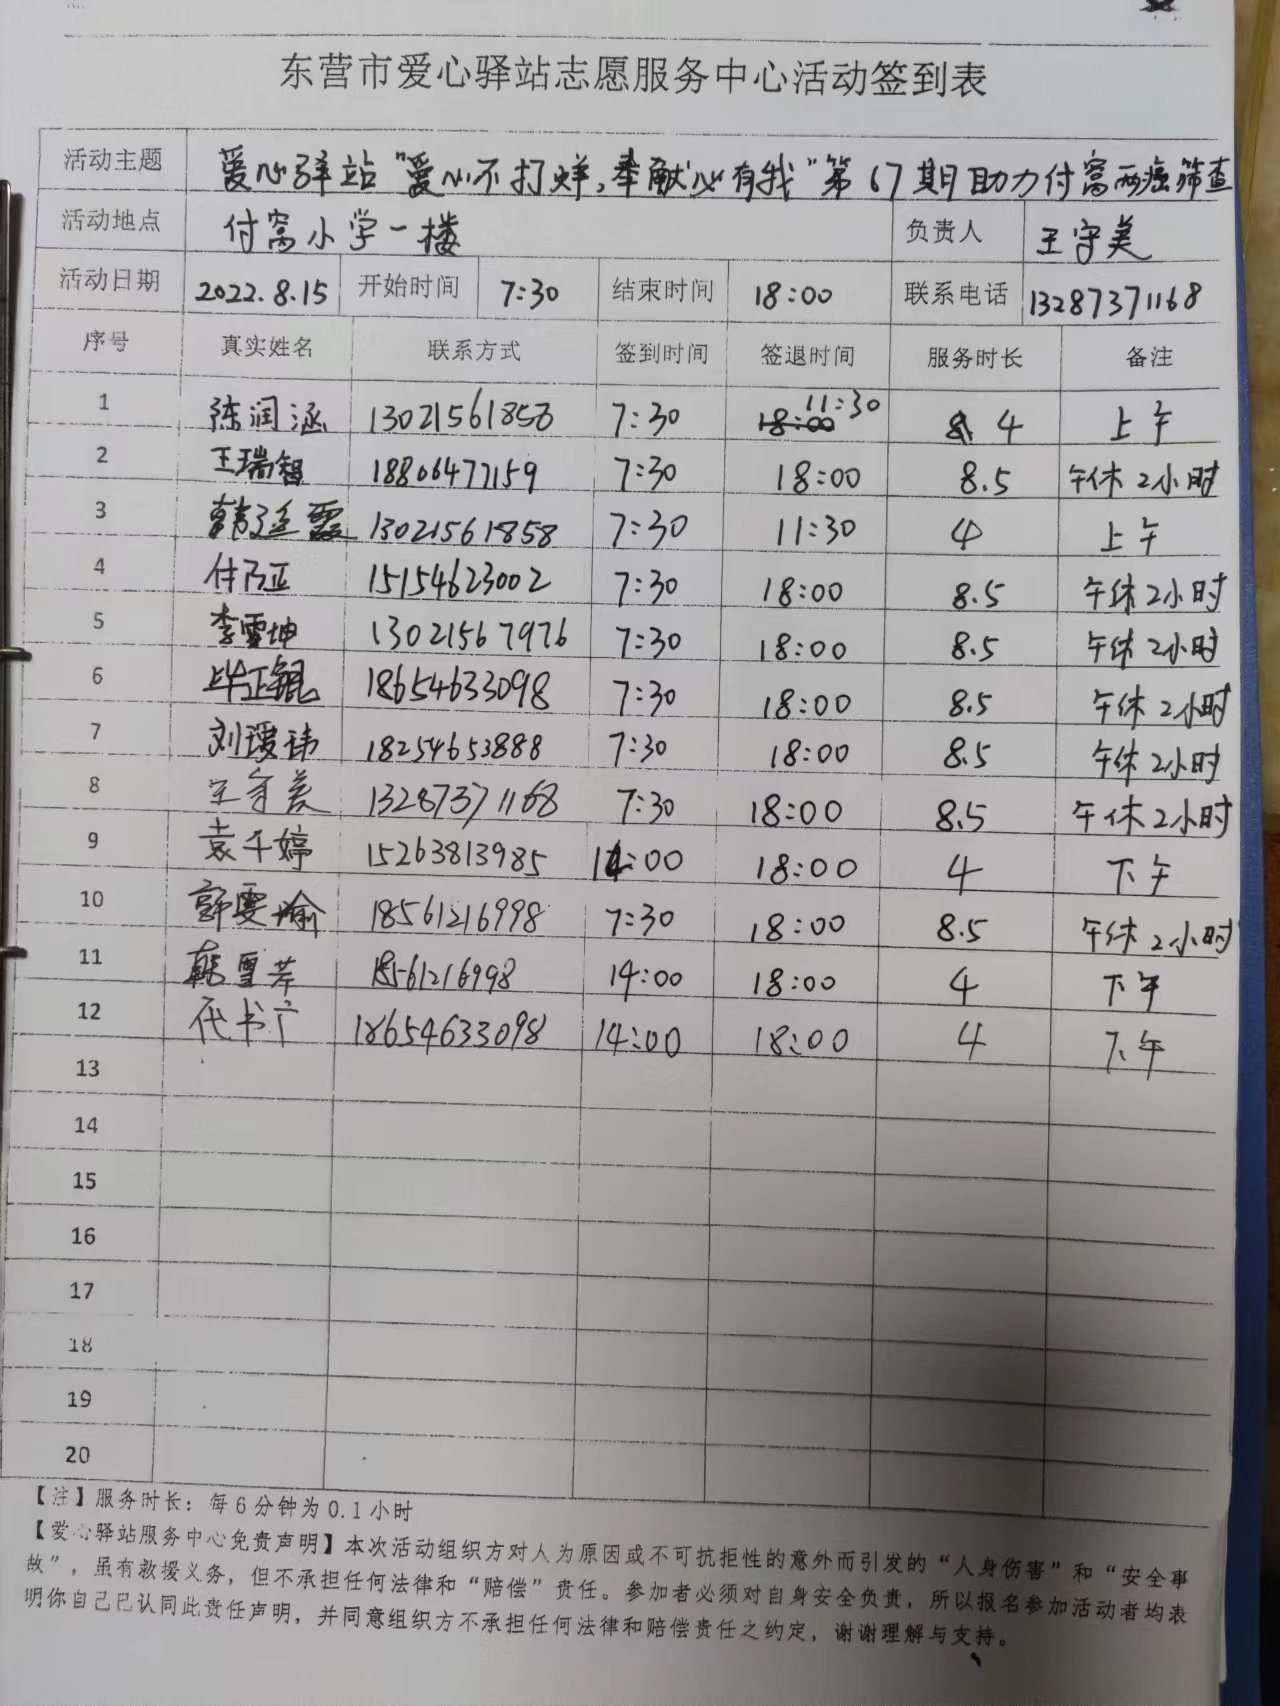 东营市爱心驿站志愿服务中心活动签到表
活动主题 爱心驿站"爱心不打烊,奉献必有我"第67期助力付窝两癌筛查
活动地点 付窝小学一楼 负责人 王守美
活动日期 2022.8.15 开始时间 7:30 结束时间 18:00 联系电话 13287371168
序号 真实姓名 联系方式 签到时间 签退时间 服务时长 备注
1 陈润涵 13021561858 7:30 11:30 4 上午
2 王瑞智 18806477159 7:30 18:00 8.5 午休2小时
3 13021561858 7:30 11:30 4 上午
4 15154623002 7:30 18:00 8.5 午休2小时
5 李雪坤 13021567976 7:30 18:00 8.5 午休2小时
6 毕正锟 18654633098 7:30 18:00 8.5 午休2小时
7 刘瑷玮 18254653888 7:30 18:00 8.5 午休2小时
8 王守美 13287371168 7:30 18:00 8.5 午休2小时
9 袁千婷 15263813985 14:00 18:00 4 下午
10 18561216998 7:30 18:00 8.5 午休2小时
11 韩雪芹 18561216998 14:00 18:00 4 下午
12 18654633098 14:00 18:00 4 下午
13
14
15
16
17
18
19
20
【注】服务时长:每6分钟为0.1小时
【爱心驿站服务中心免责声明】本次活动组织方对人为原因或不可抗拒性的意外而引发的“人身伤害”和“安全事
故”,虽有救援义务,但不承担任何法律和“赔偿”责任。参加者必须对自身安全负责,所以报名参加活动者均表
明你自己已认同此责任声明,并同意组织方不承担任何法律和赔偿责任之约定,谢谢理解与支持。